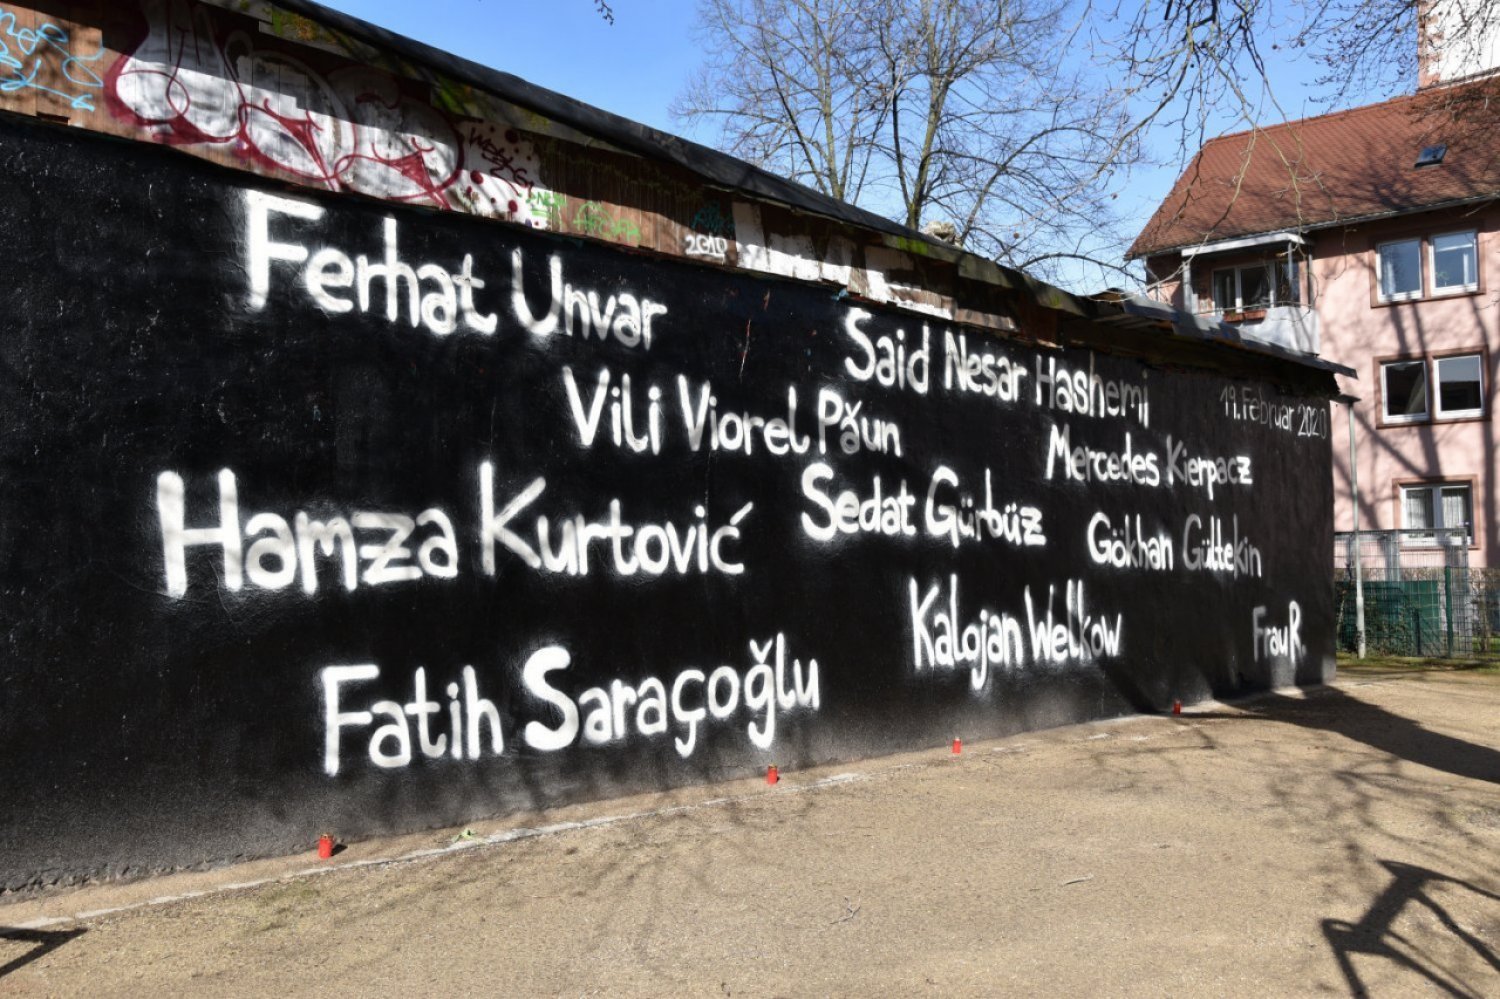 2019
Ferhat Unvar
Said Nesar Hashemi
19. Februar 2020
Vili Viorel Păun
Mercedes Kierpacz
Hamza Kurtović
Sedat Gürbüz
Gökhan Gültekin
Kalojan Welkow
Frau R.
Fatih Saraçoğlu